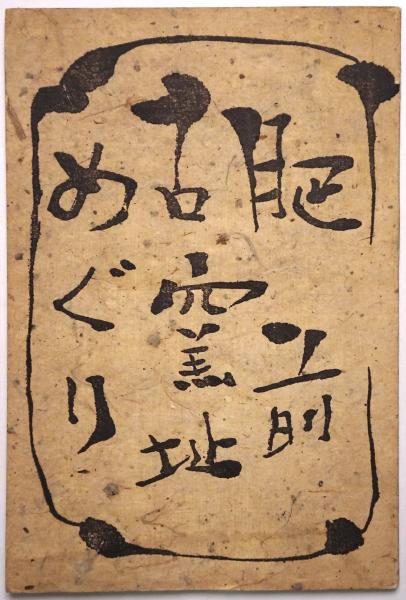 肥前
古窯址
めぐり